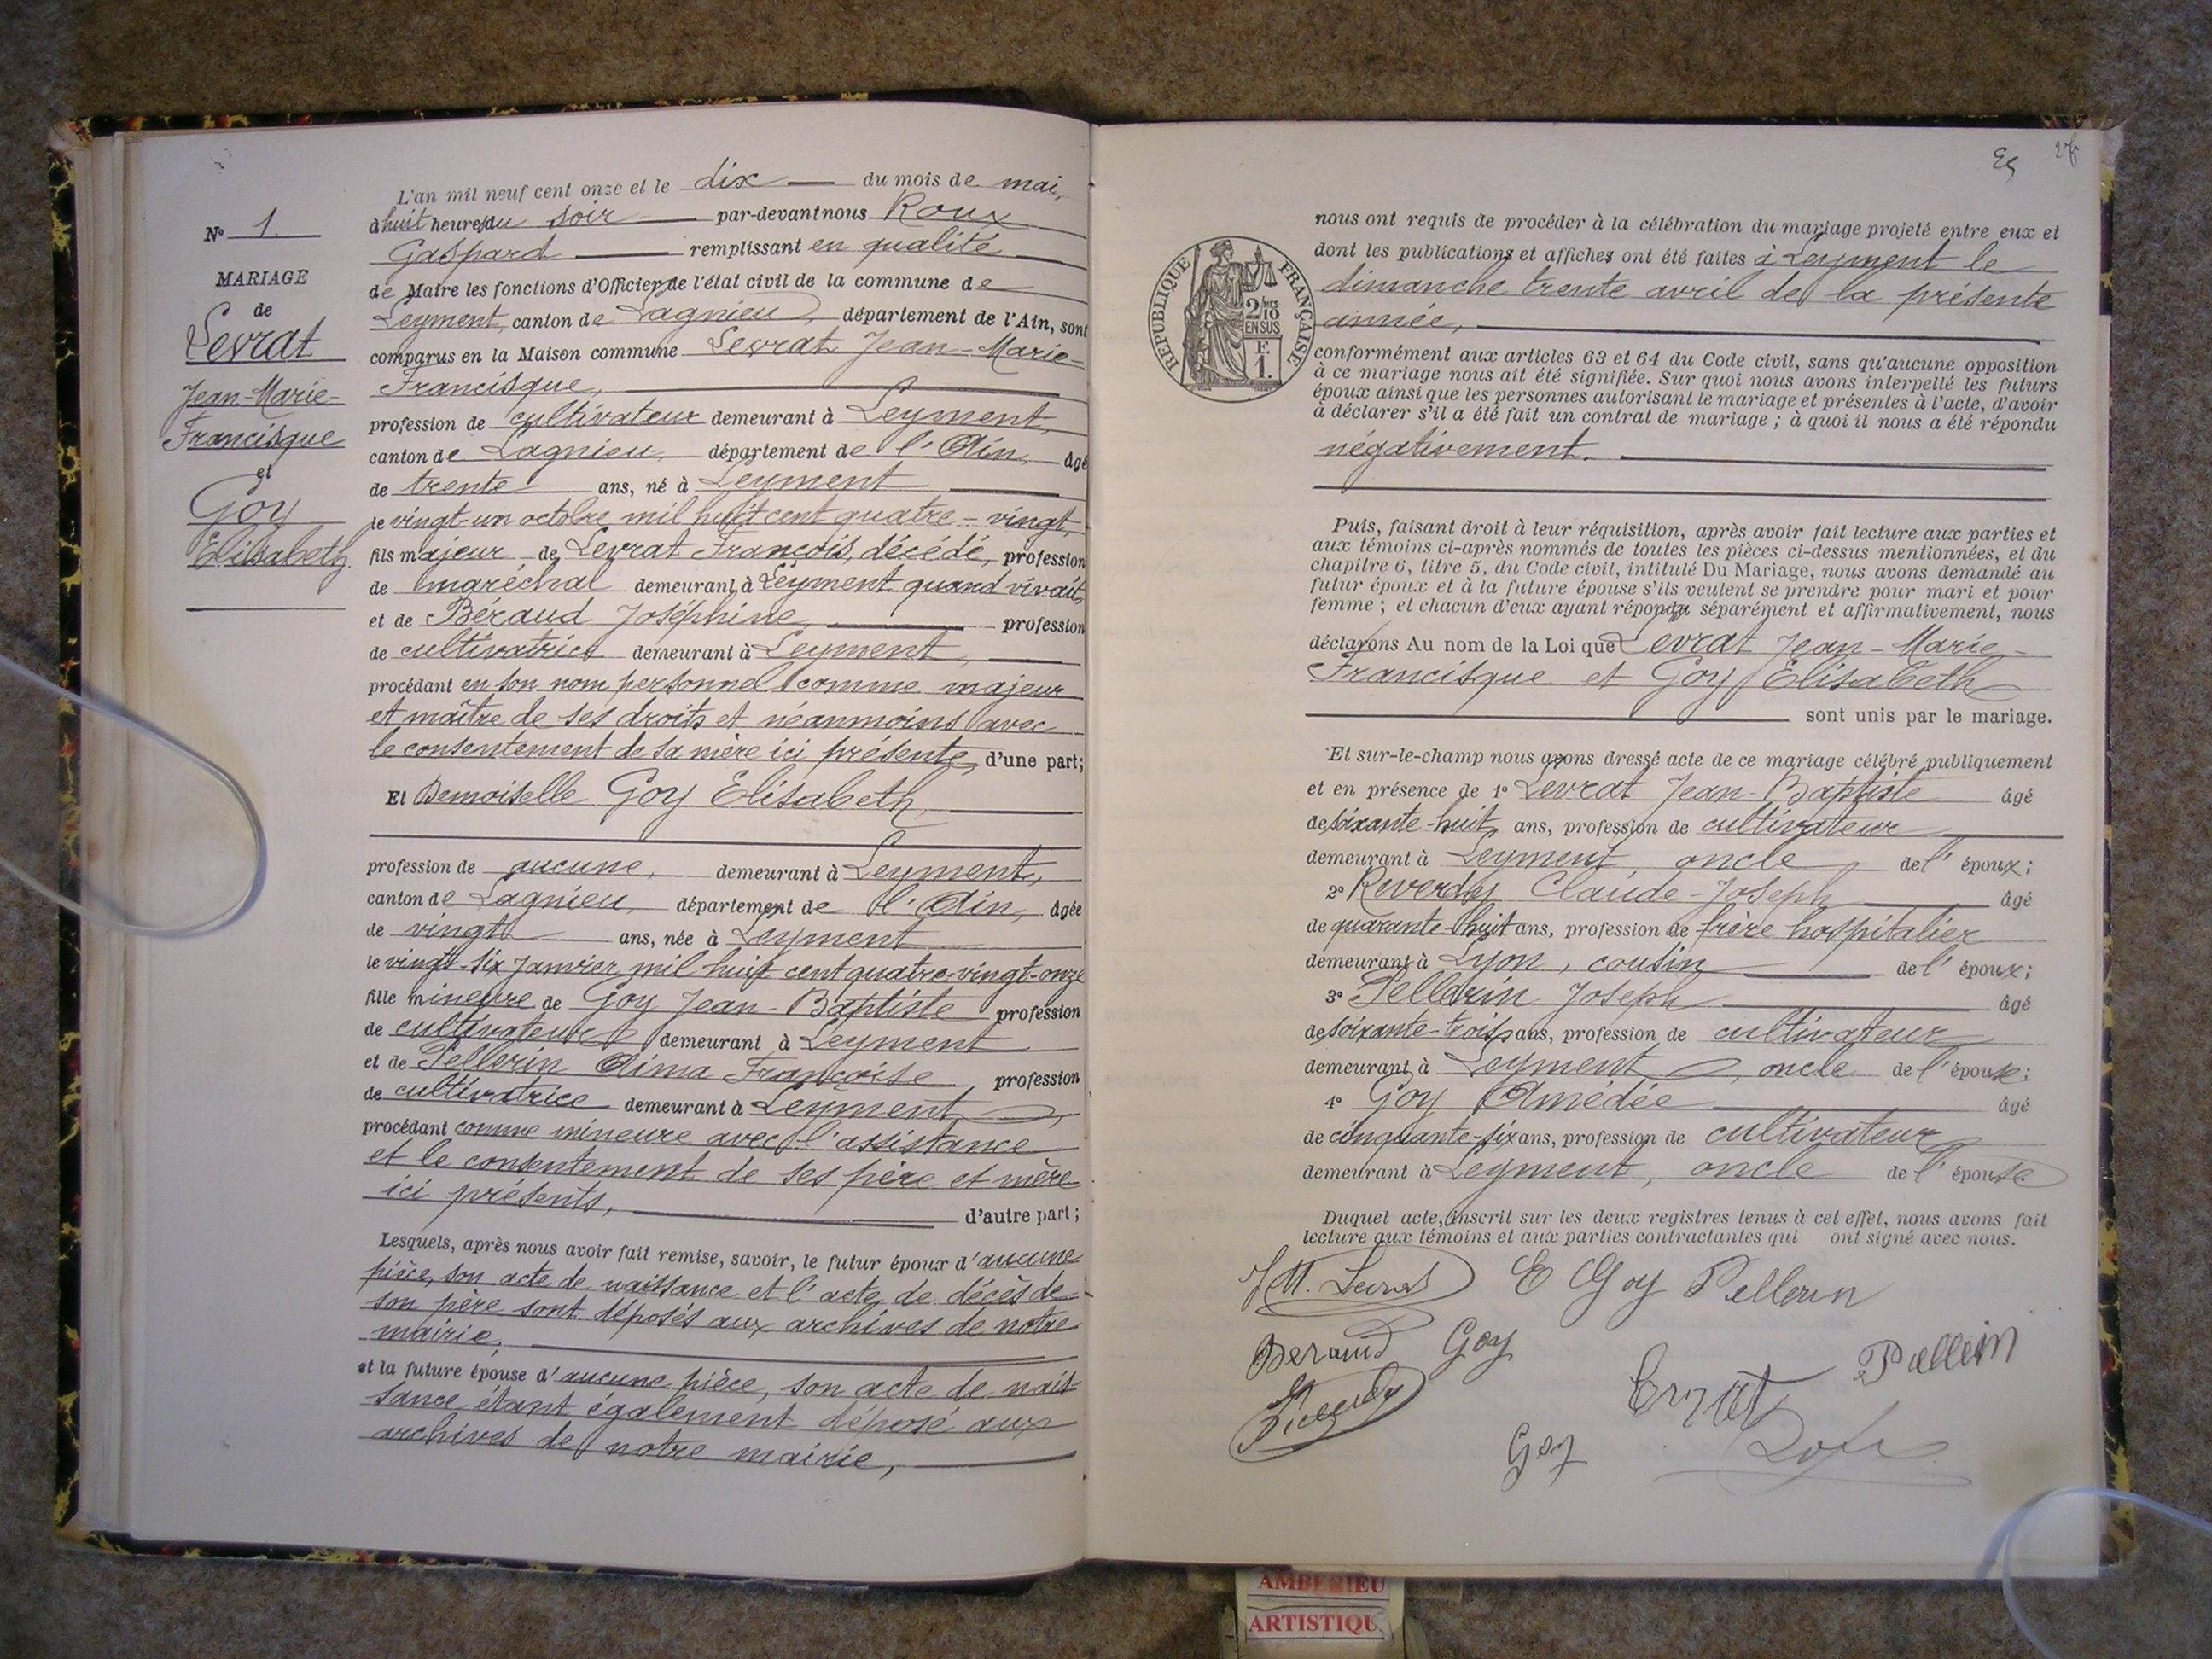 N° 1.
MARIAGE
de
Levrat
Jean-Marie-
Francisque
et
Goy
Elisabeth.
L'an mil neuf cent onze et le dix du mois de mai,
à huit heures du soir par-devant nous Roux
Gaspard remplissant en qualité
de Maire les fonctions d'Officier de l'état civil de la commune de
Leyment, canton de Lagnieu, département de l'Ain, sont
comparus en la Maison commune Levrat Jean-Marie-
Francisque,
profession de cultivateur demeurant à Leyment,
canton de Lagnieu, département de l'Ain, âgé
de trente ans, né à Leyment
le vingt-un octobre mil huit cent quatre-vingt,
fils majeur de Levrat François, décédé, profession
de maréchal demeurant à Leyment quand vivait,
et de Béraud Joséphine, profession
de cultivatrice demeurant à Leyment,
procédant en son nom personnel comme majeur
et maître de ses droits et néanmoins avec
le consentement de sa mère ici présente, d'une part;
Et Demoiselle Goy Elisabeth,
profession de aucune, demeurant à Leyment,
canton de Lagnieu, département de l'Ain, âgée
de vingt ans, née à Leyment
le vingt-six janvier mil huit cent quatre-vingt-onze
fille mineure de Goy Jean-Baptiste profession
de cultivateur demeurant à Leyment
et de Pellerin Aima Françoise, profession
de cultivatrice demeurant à Leyment,
procédant comme mineure avec l'assistance
et le consentement de ses père et mère
ici présents, d'autre part;
Lesquels, après nous avoir fait remise, savoir, le futur époux d'aucune
pièce, son acte de naissance et l'acte de décès de
son père sont déposés aux archives de notre
mairie,
et la future épouse d'aucune pièce, son acte de nais-
sance étant également déposé aux
archives de notre mairie,
RÉPUBLIQUE FRANÇAISE
2/10
EN SUS
F.
1.
nous ont requis de procéder à la célébration du mariage projeté entre eux et
dont les publications et affiches ont été faites à Leyment le
dimanche trente avril de la présente
année,
conformément aux articles 63 et 64 du Code civil, sans qu'aucune opposition
à ce mariage nous ait été signifiée. Sur quoi nous avons interpellé les futurs
époux ainsi que les personnes autorisant le mariage et présentes à l'acte, d'avoir
à déclarer s'il a été fait un contrat de mariage ; à quoi il nous a été répondu
négativement.
Puis, faisant droit à leur réquisition, après avoir fait lecture aux parties et
aux témoins ci-après nommés de toutes les pièces ci-dessus mentionnées, et du
chapitre 6, titre 5, du Code civil, intitulé Du Mariage, nous avons demandé au
futur époux et à la future épouse s'ils veulent se prendre pour mari et pour
femme ; et chacun d'eux ayant répondu séparément et affirmativement, nous
déclarons Au nom de la Loi que Levrat Jean-Marie-
Francisque et Goy Elisabeth
sont unis par le mariage.
Et sur-le-champ nous avons dressé acte de ce mariage célébré publiquement
et en présence de 1° Levrat Jean-Baptiste âgé
de soixante-huit ans, profession de cultivateur
demeurant à Leyment, oncle de l'époux;
2° Reverdy Claude-Joseph âgé
de quarante-huit ans, profession de frère hospitalier
demeurant à Lyon, cousin de l'époux;
3° Pellerin Joseph âgé
de soixante-trois ans, profession de cultivateur
demeurant à Leyment, oncle de l'épouse;
4° Goy Amédée âgé
de cinquante-six ans, profession de cultivateur
demeurant à Leyment, oncle de l'épouse
Duquel acte, inscrit sur les deux registres tenus à cet effet, nous avons fait
lecture aux témoins et aux parties contractantes qui ont signé avec nous.
J M. Levrat E Goy Pellerin
Beraud Goy
Pellerin
Goy
AMBERIEU
ARTISTIQU